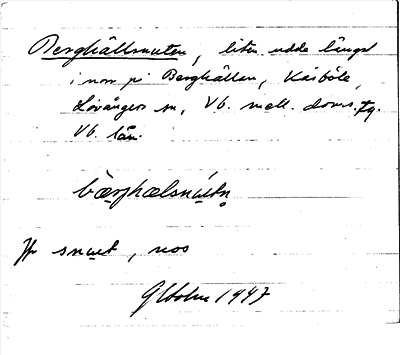 Berghällsnuten, liten udde längst
inom på Berghällan, Kåsböle,
Lövångers sn, Vb. mell. doms. tg.
Vb. län.
bærjhælsnùtn̥
Jfr snut, nos
GHolm 1947